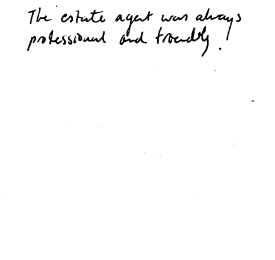 The estate agent was always
professional and friendly!